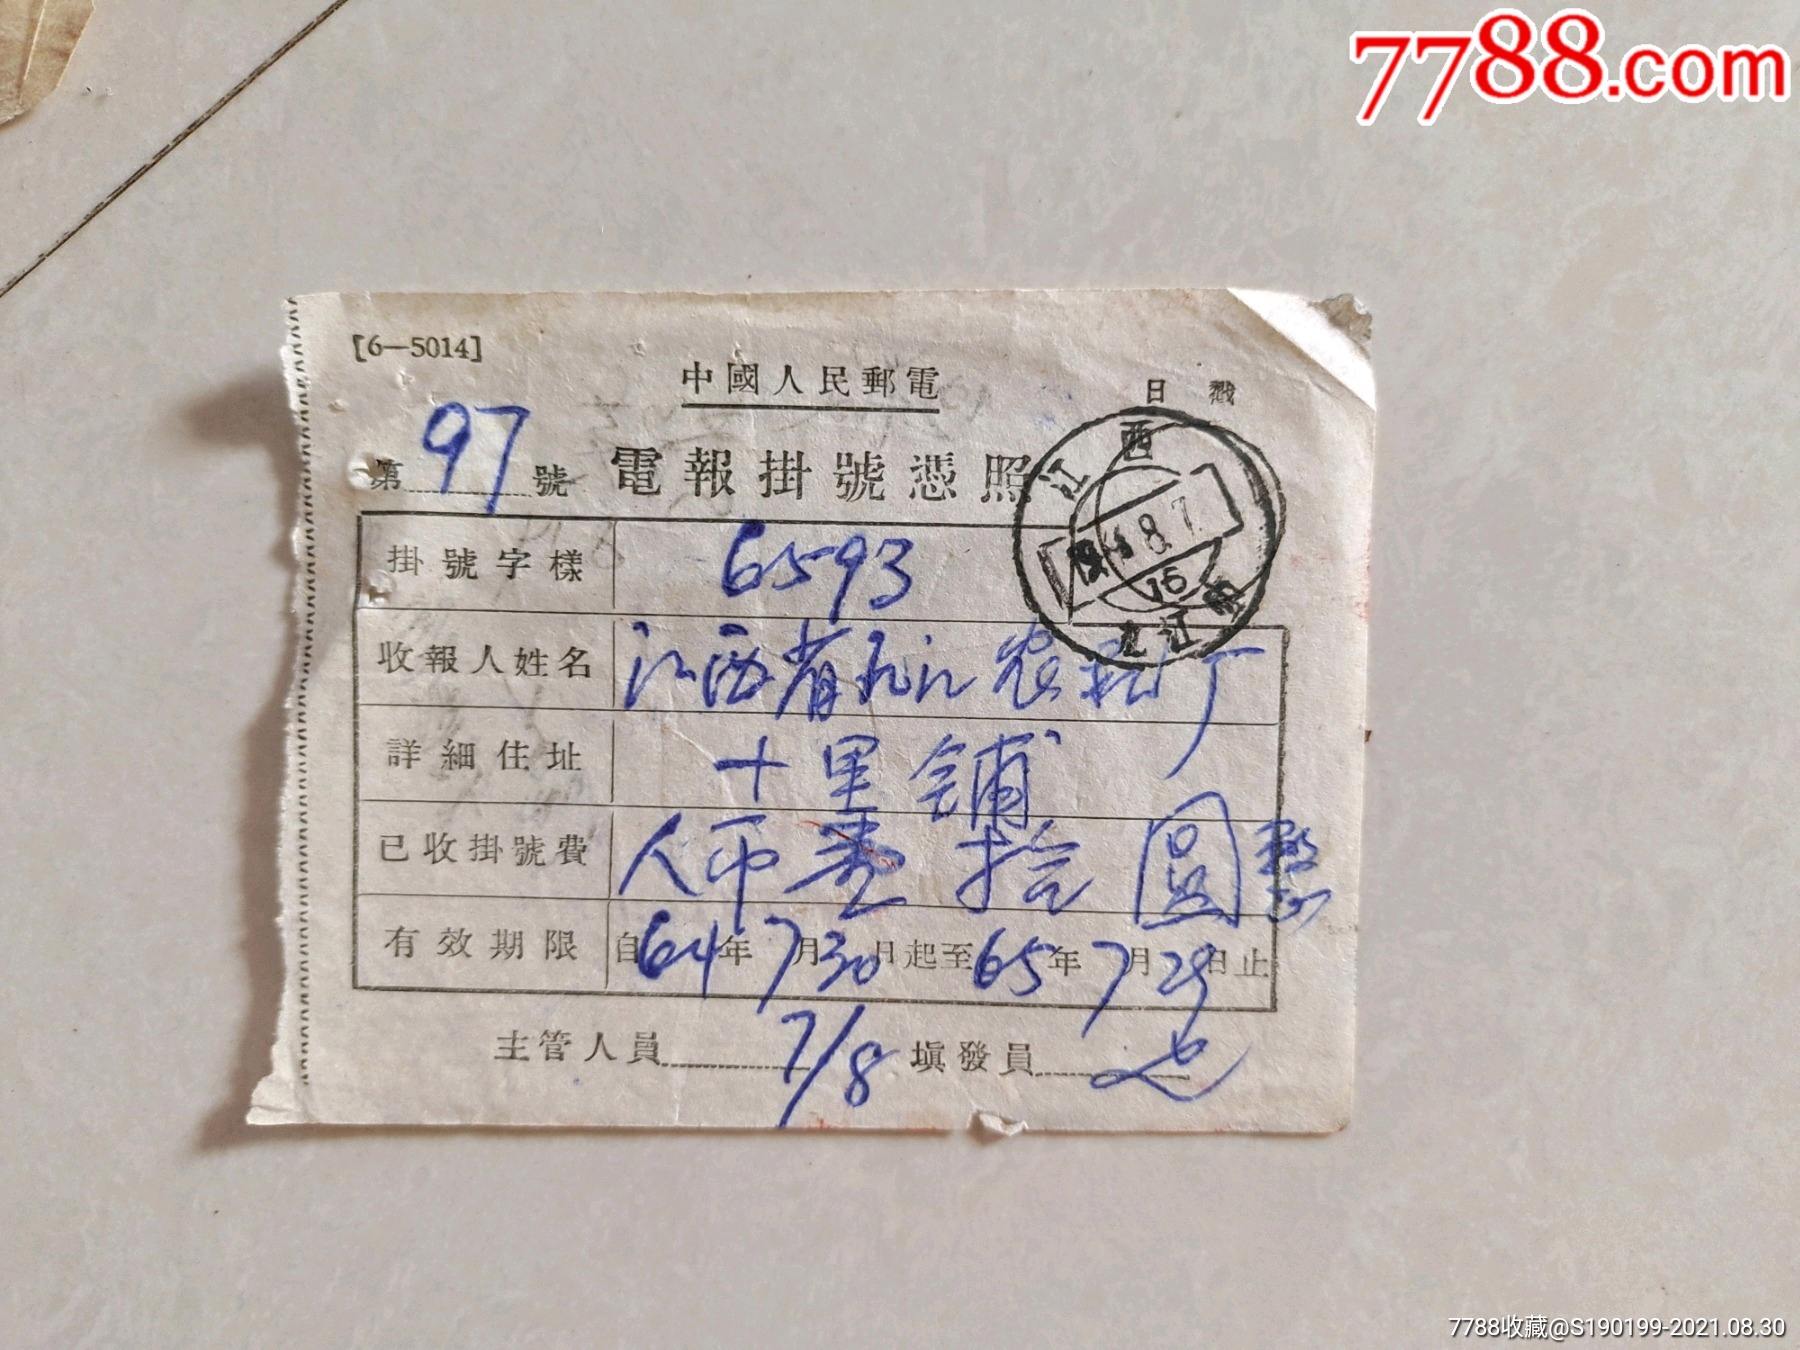 7788.com
[6—5014]
中國人民郵電
日戳
第97號 電報掛號憑照
江西
8.7
16
九江
掛號字樣 6593
收報人姓名 江西省九江农药厂
詳細住址 十里舖
已收掛號費 人币壹拾圓整
有效期限 自64年7月30日起至65年7月29日止
主管人員 7/8 塡發員
7788收藏@S190199-2021.08.30